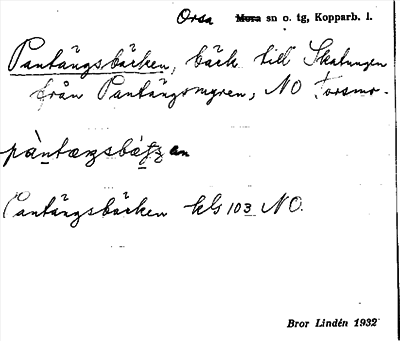 Orsa Mora sn o. tg, Kopparb. l.
Pantängsbäcken, bäck till Skatungen
från Pantängsmyren, NO Torsmo.
Pantängsbäcken kbl 103 NO.
Bror Lindén 1932